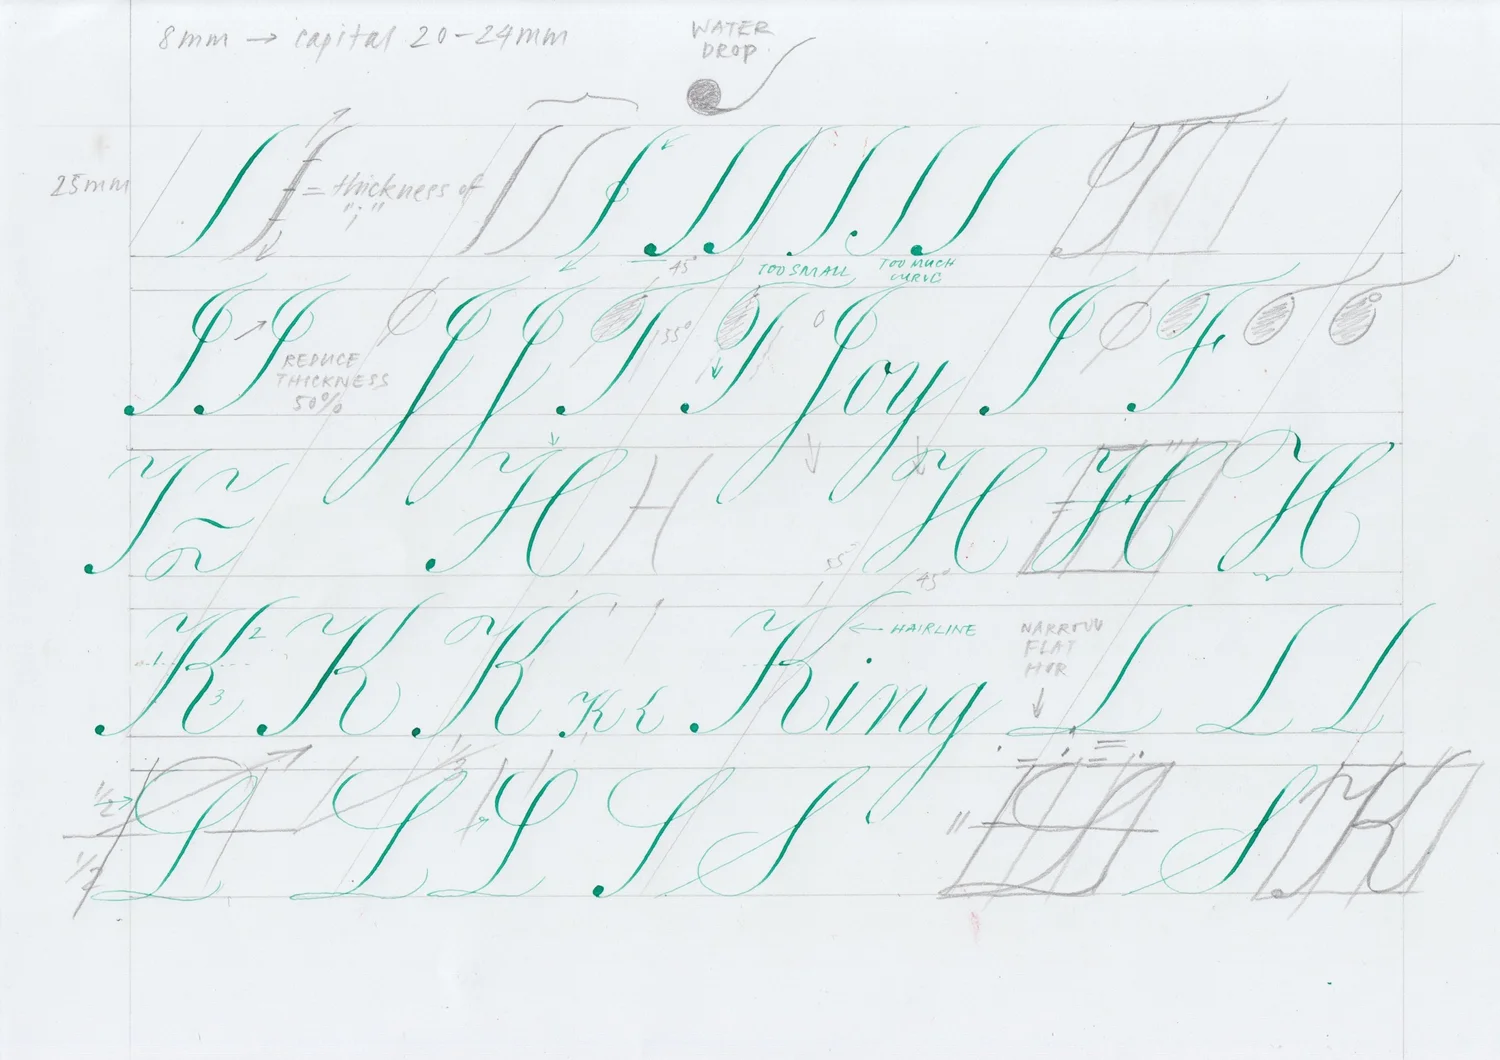 8mm → capital 20-24mm
WATER
DROP
25mm
= thickness of
"i"
45°
TOO SMALL
TOO MUCH
CURVE
REDUCE
THICKNESS
50%
I I J J T 55° T Joy I F
I H H 55° 45° H H H
K 1 2 3 K K K k King
← HAIRLINE
NARROW
FLAT
L L L
1/2
1/2
L L 1/3 L S S L S K